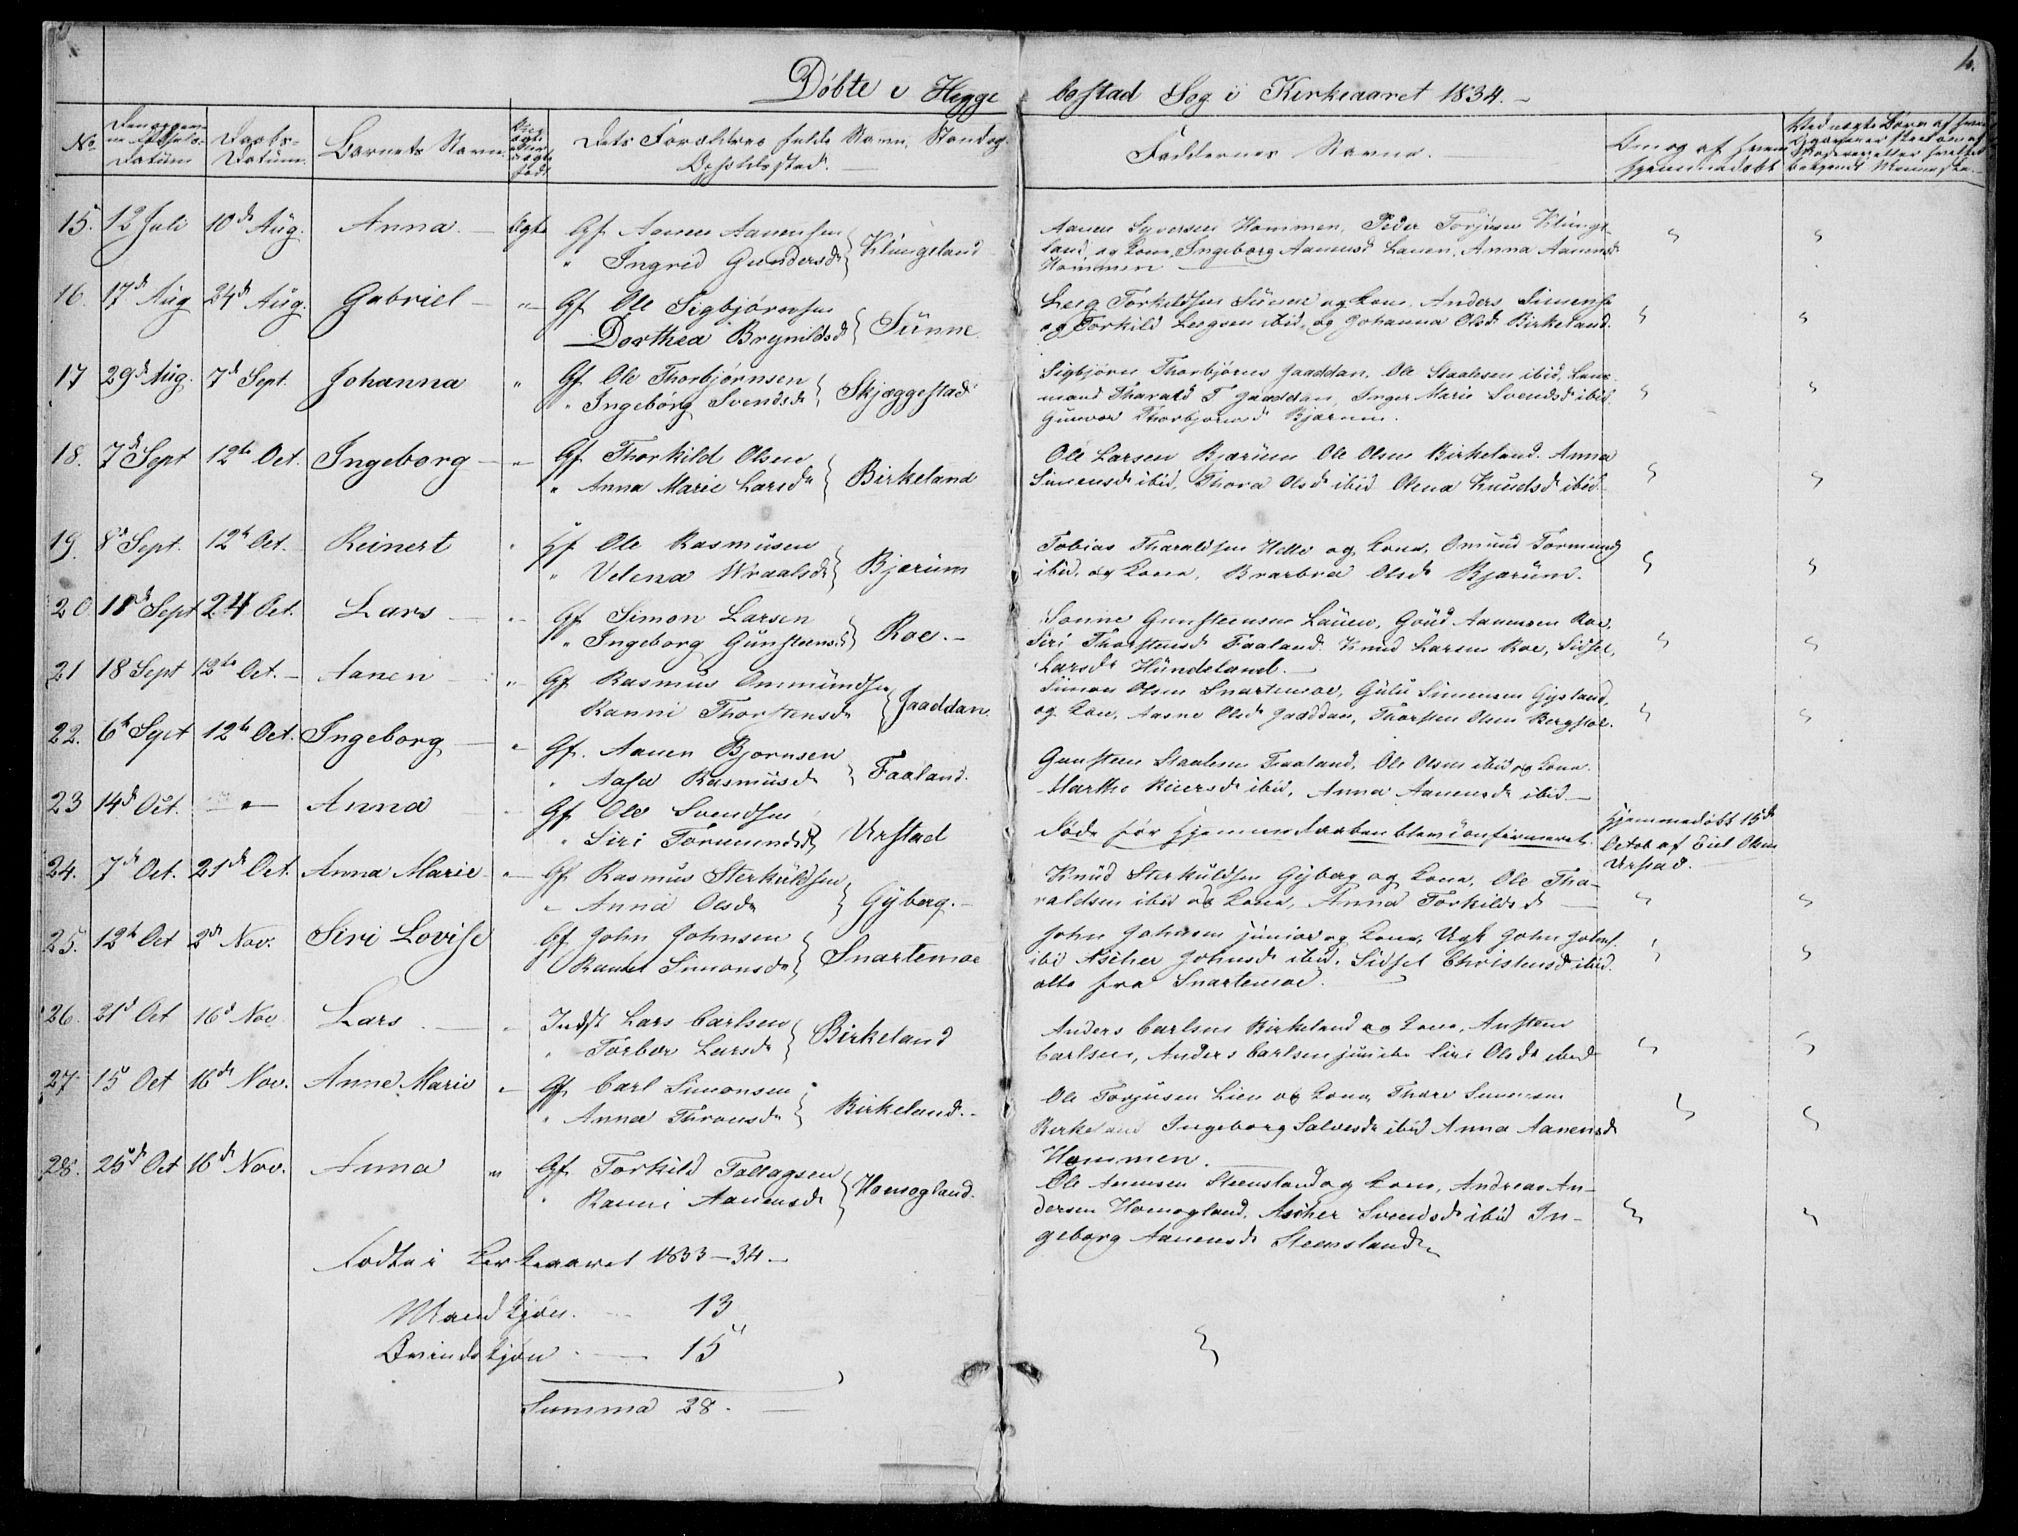 4.
Døbte i Heggebostad Sog i Kirkeaaret 1834.
No
Datum
Daabs-Datum.
Barnets Navn
Dets Forældres fulde Navn, Stand og Opholdssted.
Faddernes Navne.
Om og af hvem hjemmedøbt
15. 12 Juli 10de Aug. Anna Ægte Gf. Aanen Aanensen
" Ingrid Gundersdr Klungeland
Aanen Syversen Hommen, Peder Torjusen Klunge-
land og Kone, Ingeborg Aanensd Lauen, Anna Aanensd
Hommen
16. 17de Aug 24de Aug. Gabriel " Gf. Ole Sigbjørnsen
Dorthea Brynildsd Sünne
Torkildsen Sünne og Kone, Anders Simens.
og Torkild ibid, og Johanna Olsd Birkeland.
17 29de Aug. 7de Sept. Johanna " Gf. Ole Thorbjørnsen
" Ingebórg Svendsd Skjæggestad
Sigbjørn Thorbjørns Gaaddan, Ole Staalesen ibid, Lens-
mand Tharald T Gaaddan, Inger Marie Svendsd ibid
Gunvor Thorbjørnsd Bjærum.
18. 7de Sept 12te Oct. Ingeborg " Gf. Thorkild Olsen
" Anna Marie Larsdr Birkeland
Ole Larsen Bjærüm Ole Olsen Birkeland. Anna
Simensd ibid, Thora Olsd ibid Olena Knudsd ibid
19. 8d Sept. 12te Oct. Reinert " Hf. Ole Rasmüsen
" Velena Wraalsdr Bjærüm
Tobias Tharaldsen Helle og Kone, Omund Tormunds
ibid. og Kone, Brarbra Olsdr Bjærüm.
20 11de Sept 24 Oct. Lars " Gf. Simon Larsen
" Ingeborg Günsteens. Roe.
Sonne Gunsteensen Laüen, Goüd Aanensen Roe,
Siri Thorstensd Faaland. Knud Larsen Roe, Sidsel
Larsdr Hündeland.
21 18 Sept 12te Oct. Aanen " Gf. Rasmus Ommündsen
Ranni Thorstensd Gaaddan
Simon Olsen Snartemoe, Gülü Simensen Gysland,
og Kone, Aasne Olsd Gaaddan, Thorsten Olsen Bergstøl.
22. 6te Sept 12te Oct. Ingeborg " Gf. Aanen Bjørnsen
" Aasa Rasmüsdr Faaland.
Gunsteen Staalesen Faaland, Ole Olsen ibid og Kone.
Marthe Reiersdr ibid, Anna Aanensdr ibid
23 14de Oct. " Anna Gf. Ole Svendsen
" Siri Tormundsd Urstad
Døde før Hjemmedaaben blev Confirmeret.
Hjemmedøbt 15de
Octob af Eiel Olsen
Urstad.
24. 7de Oct. 21de Oct. Anna Marie " Gf. Rasmus Sterküldsen
" Anna Olsdr Gÿberg.
Knüd Sterküldsen Gÿberg og Kone, Ole Tha-
raldsen ibid og Kone, Anna Torkildsd
25. 12te Oct 2de Nov. Siri Lovise Gf. John Johnsen
Simonsdr Snartemoe
John Johnsen junior og Kone, Ugk John Johns.
ibid Ascher Johnsd ibid. Sidsel Christensd ibid.
alle fra Snartemoe.
26. 21d Oct 16d Nov. Lars " Indst Lars Carlsen
" Torbor Larsdr Birkeland
Anders Carlsen Birkeland og Kone, Ansteen
Carlsen, Anders Carlsen Siri Olsdr ibid
27 15 Oct 16de Nov. Anne Marie " Gf. Carl Simonsen
" Anna Tronsdr Birkeland.
Ole Torjusen Lien og Kone, Thore Simensen
Birkeland Ingeborg Salvesdr ibid Anna Aanensd
Hommen.
28. 25de Oct 16de Nov. Anna " Gf. Torkild Tallagsen
" Ranni Aanensdr Homogland.
Ole Steensland og Kone, Andreas An-
dersen Homogland. Ascher Svendsd ibid In-
geborg Aanensdr Steensland
Fødte i Kirkeaaret 1833-34
Mandkjøn. 13
Qvindekjøn 15
Summa 28.